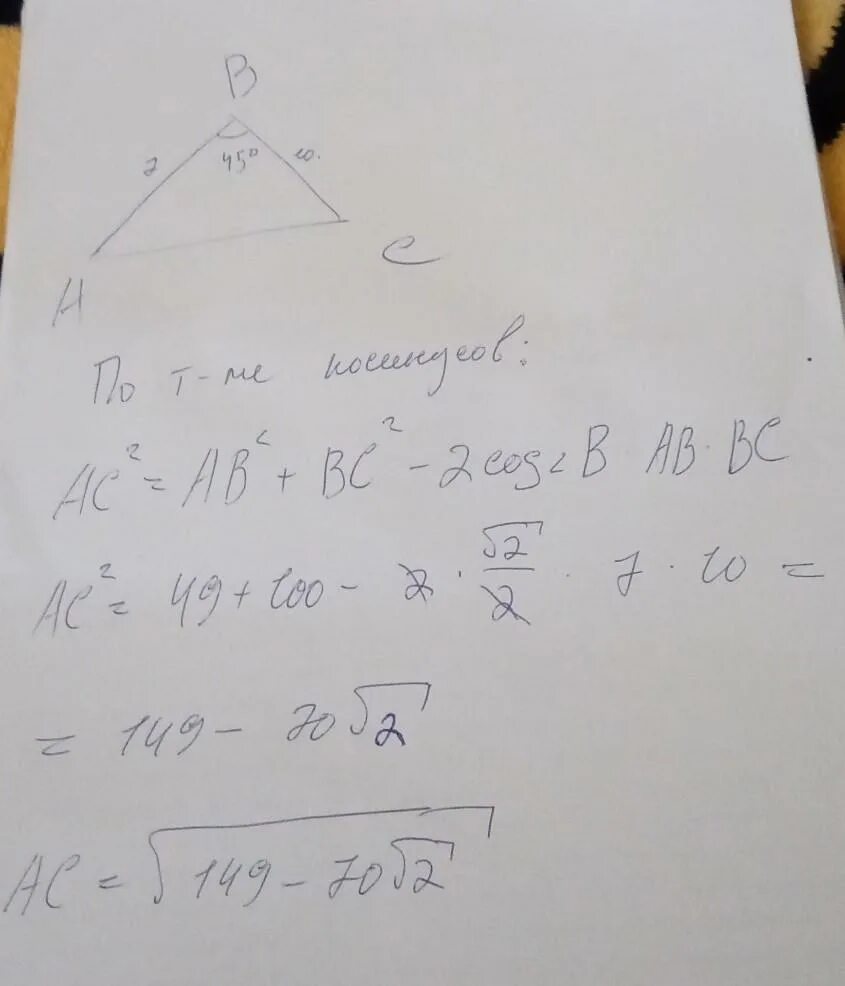 B
7
45°
10.
A
C
По т-ме косинусов:
AC² = AB² + BC² - 2cos∠B AB·BC
AC² = 49 + 100 - 2 · √2/2 · 7 · 10 =
= 149 - 70√2
AC = √(149 - 70√2)